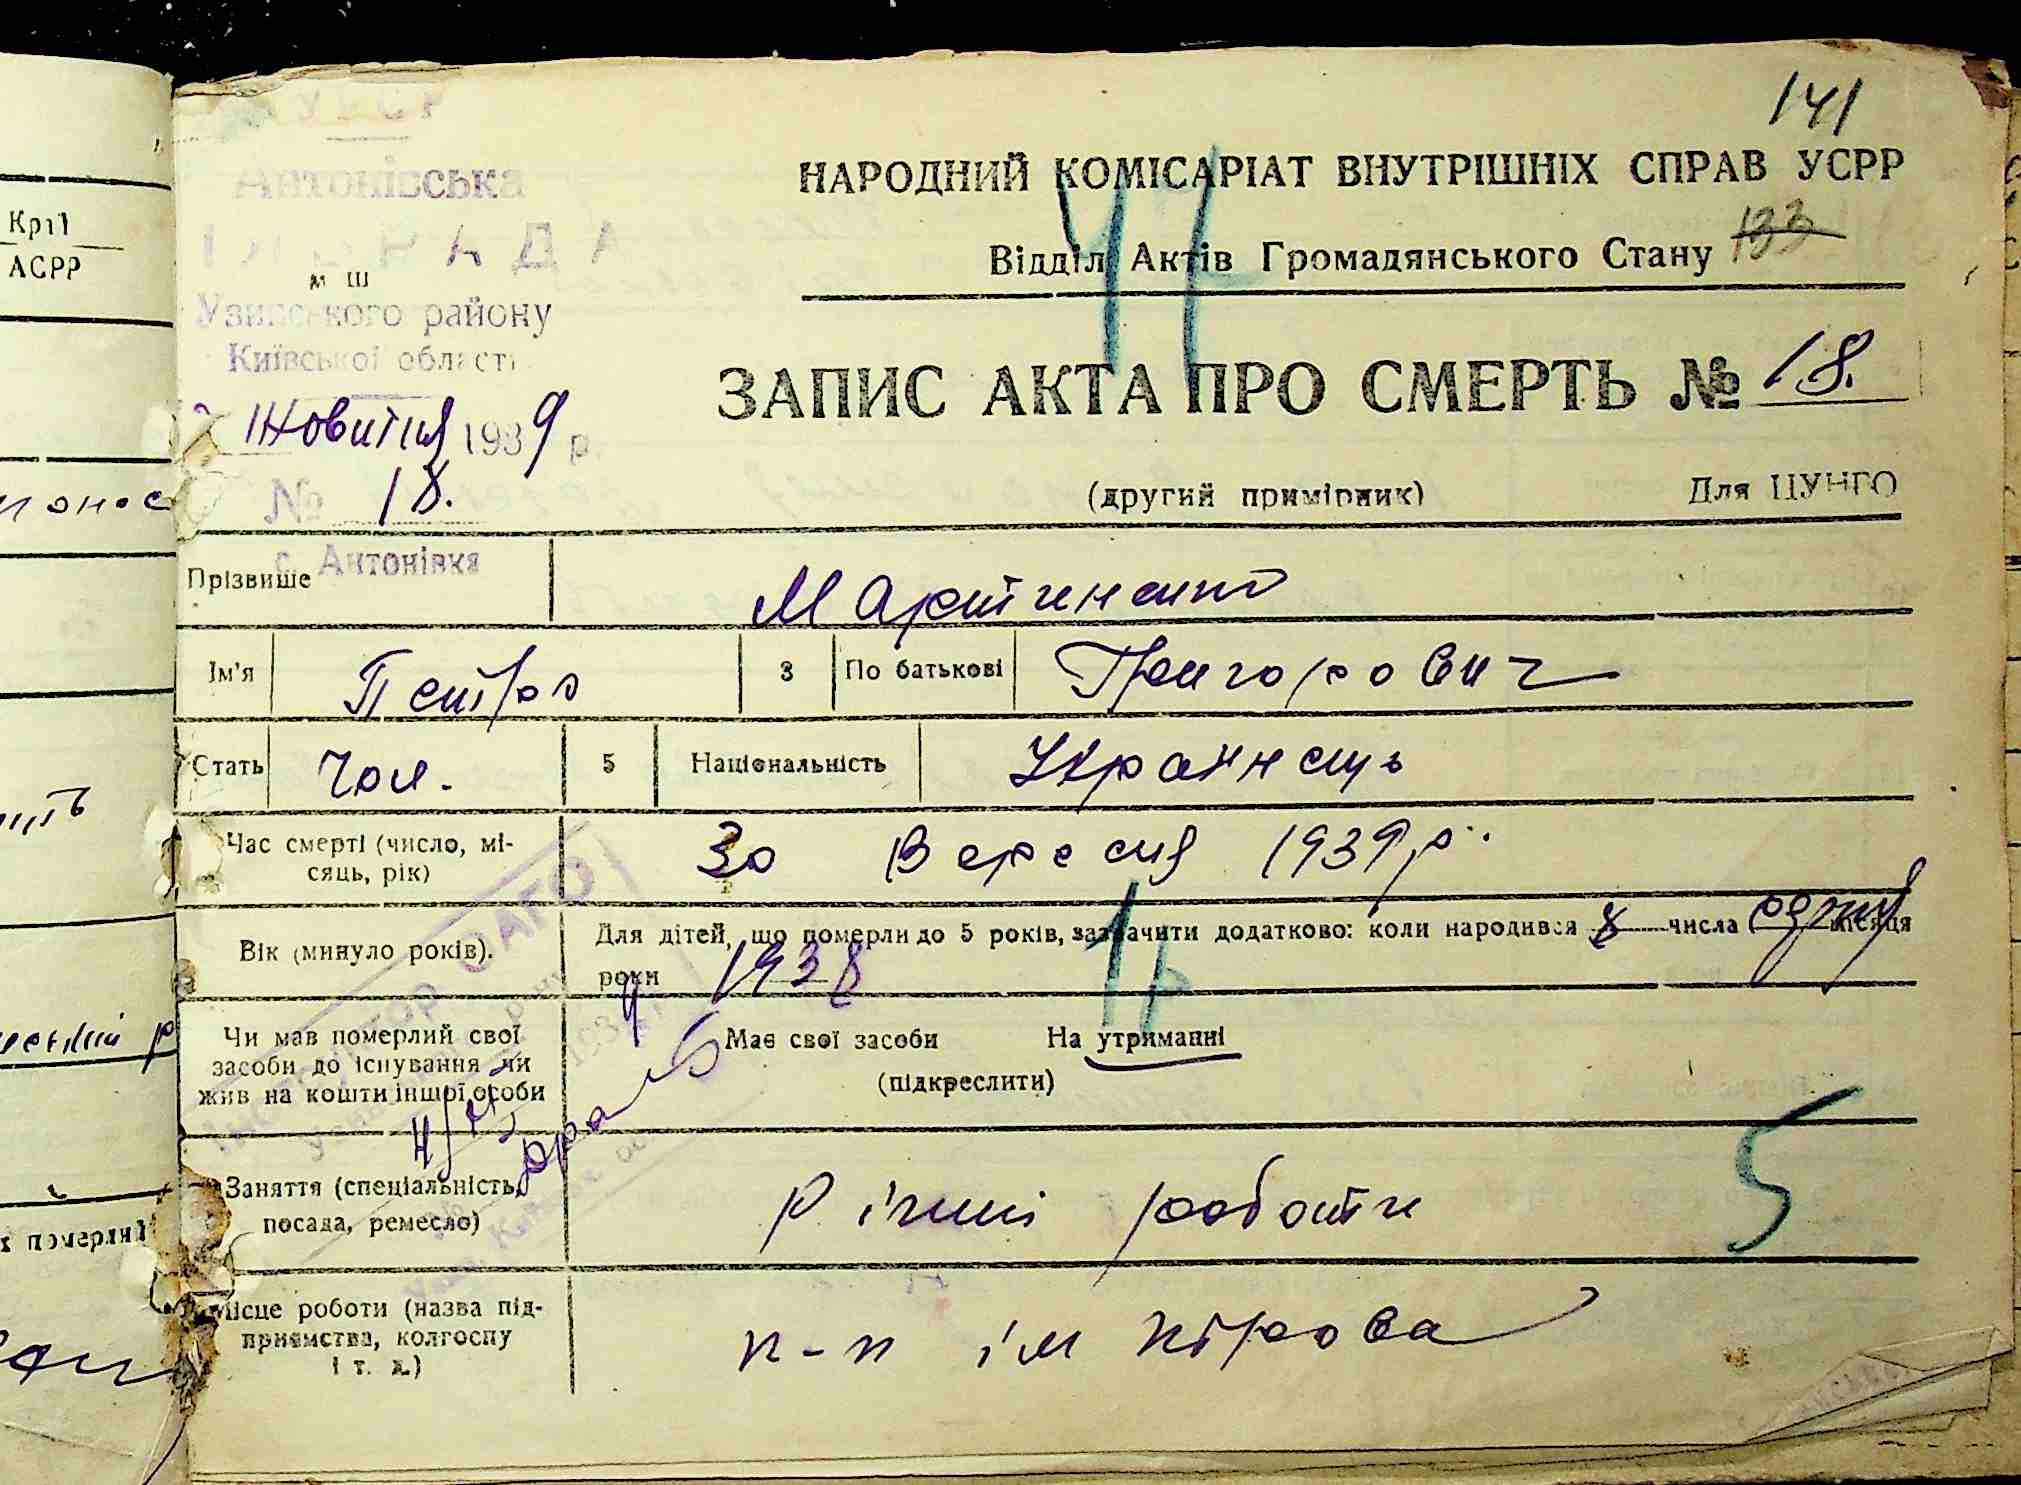 141
Антонівська
НАРОДНИЙ КОМІСАРІАТ ВНУТРІШНІХ СПРАВ УСРР
РАДА
133
Відділ Актів Громадянського Стану
Узинського району
Київської області
ЗАПИС АКТА ПРО СМЕРТЬ № 18.
Жовтня 1939 р.
№ 18.
(другий примірник) Для ЦУНГО
с. Антонівка
Прізвище Мартиненко
Ім'я Петро 3 По батькові Григорович
Стать чол. 5 Національність Українець
Час смерті (число, мі-
сяць, рік) 30 Вересня 1939 р.
Вік (минуло років). Для дітей, що померли до 5 років, зазначити додатково: коли народився 8 числа місяця
роки 1938
Чи мав померлий свої
засоби до існування чи
жив на кошти іншої особи
Має свої засоби На утриманні
(підкреслити)
5
Заняття (спеціальність,
посада, ремесло) Різні роботи
Місце роботи (назва під-
приємства, колгоспу
і т. д.) к-п ім Кірова
Кріт
АСРР
х померлий